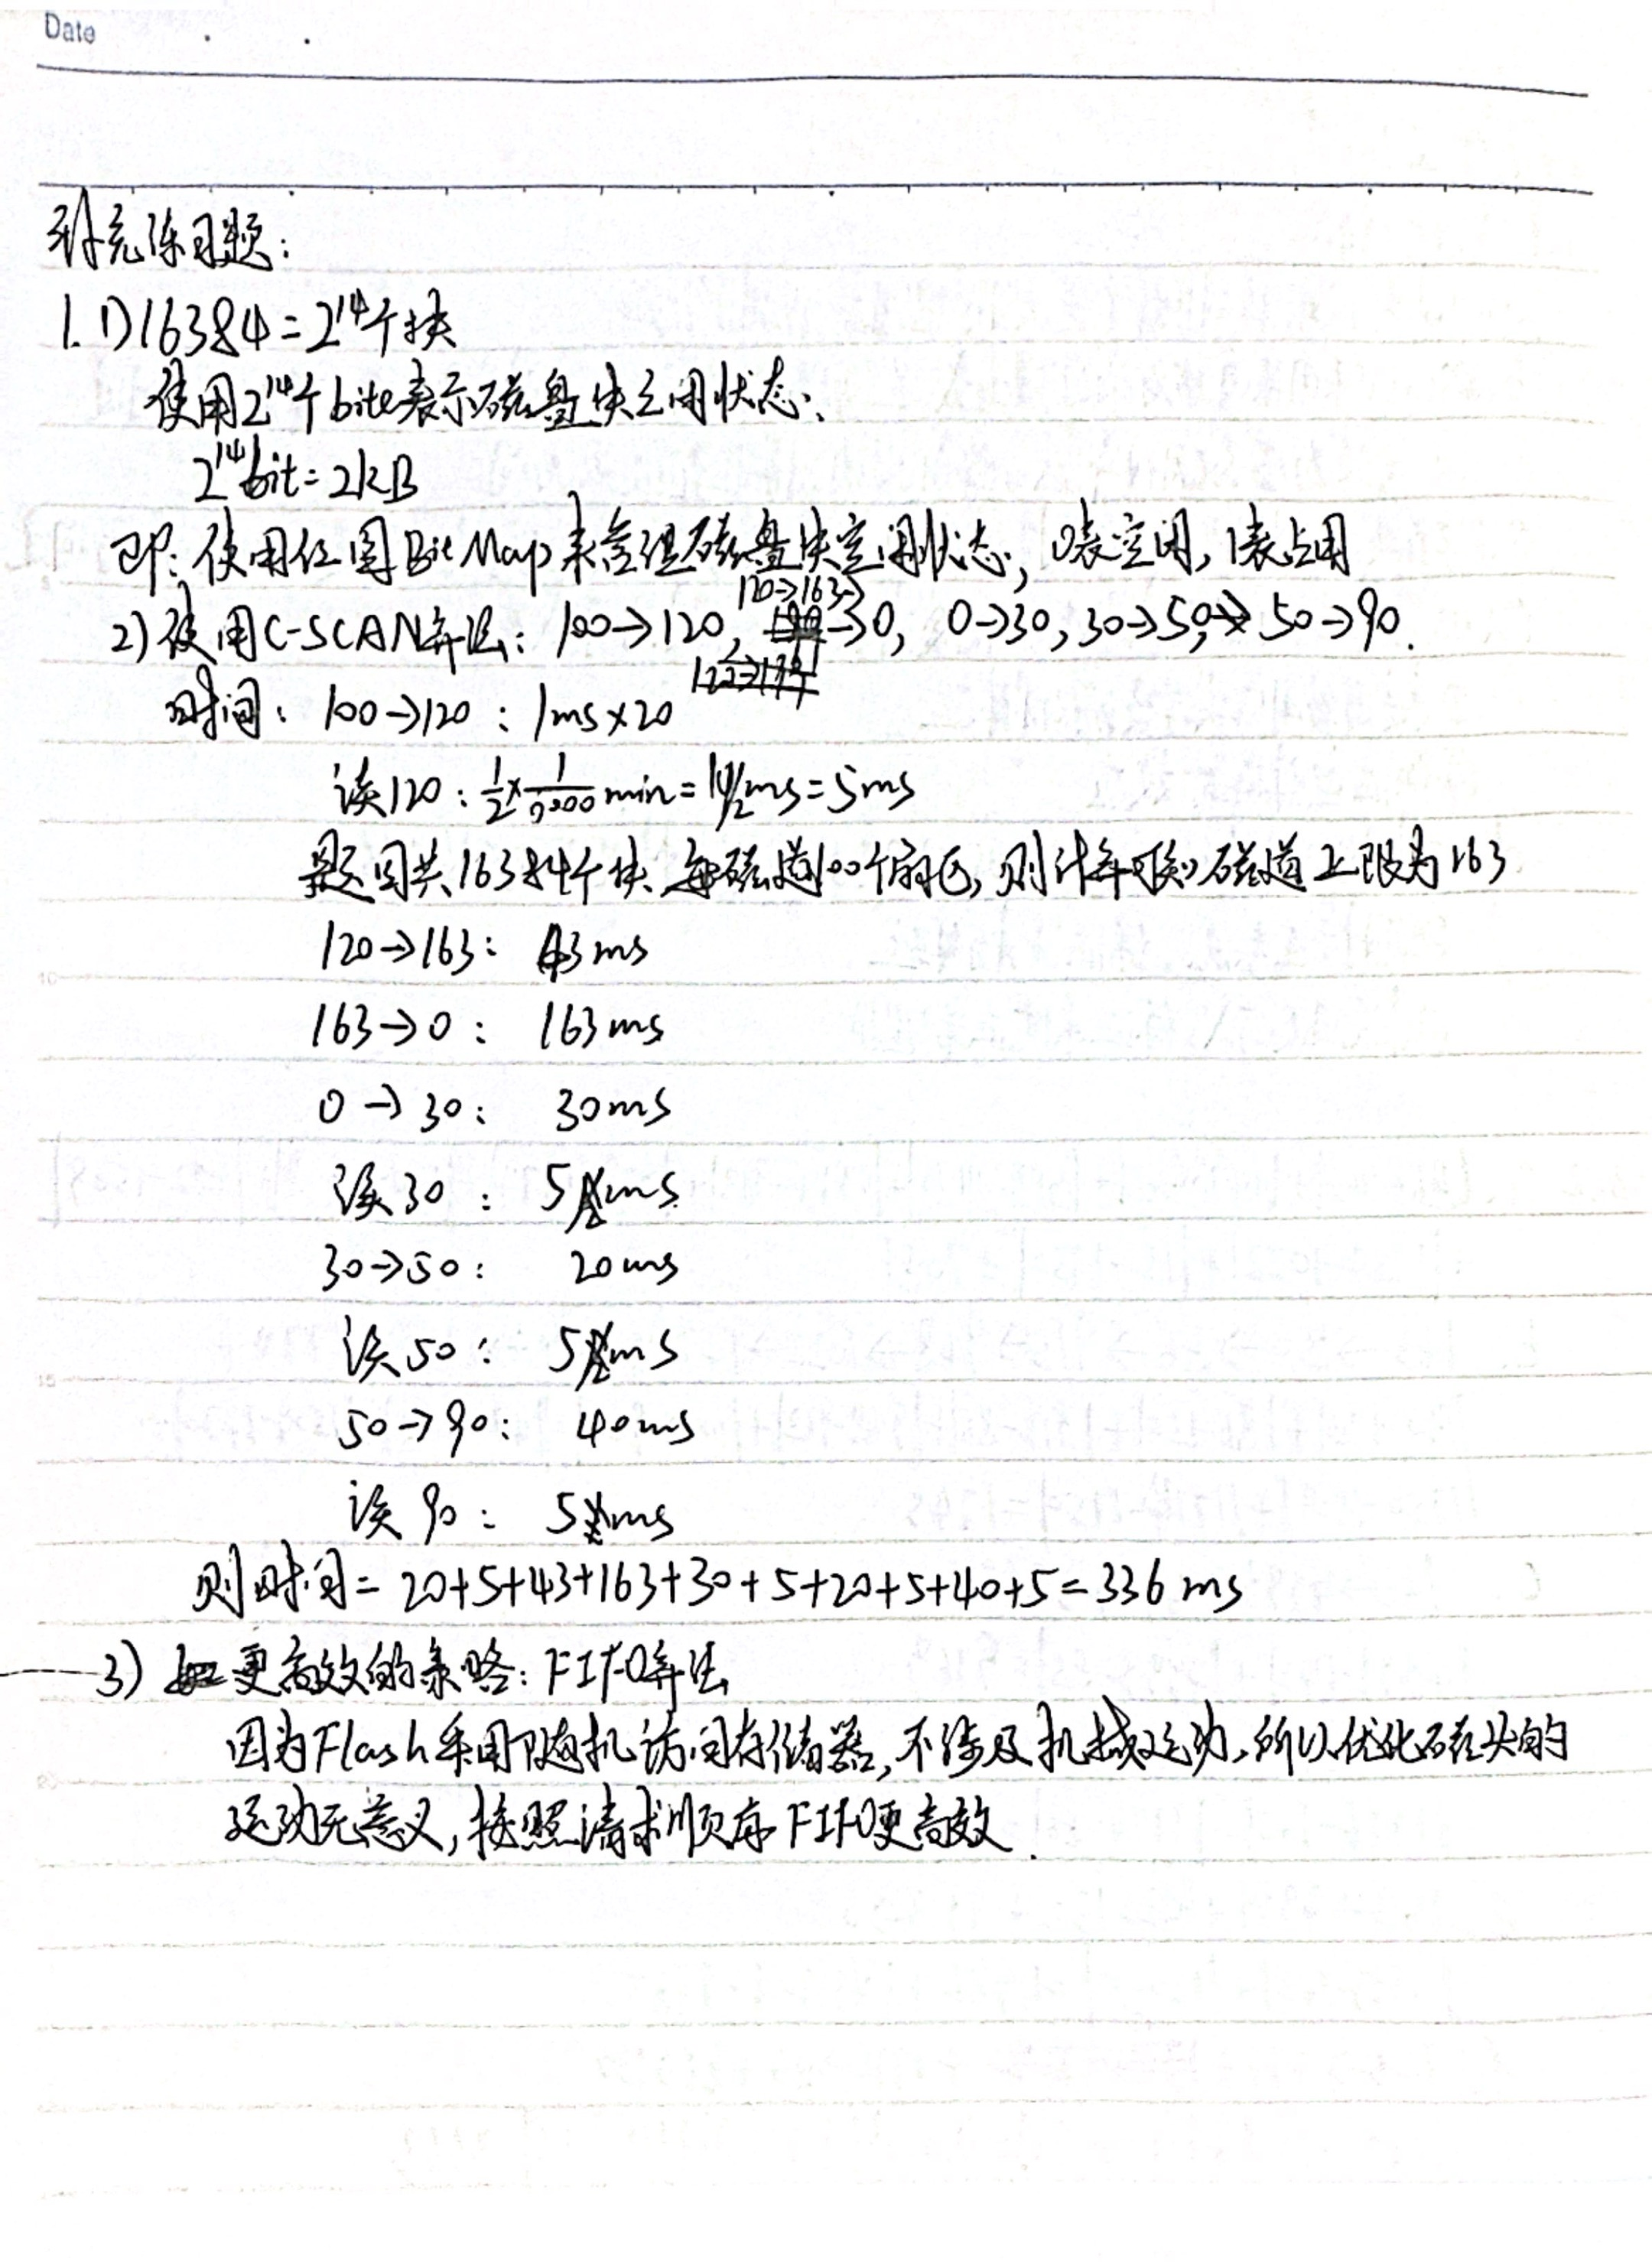 Date
补充练习题:
1. 1) 16384 = 2^14个块
使用2^14个bite表示磁盘块空闲状态:
2^14bit = 2kB
即: 使用位图Bit Map来管理磁盘块空闲状态, 0表空闲, 1表占用
2) 使用C-SCAN算法: 100→120, 120→163→0, 0→30, 30→50, 50→90.
时间: 100→120 : 1ms×20
读120 : 1/2 × 1/6000 min = 5ms
题目共16384个块, 每磁道100个扇区, 则计算可知磁道上限为163
120→163: 43ms
163→0 : 163ms
0→30 : 30ms
读30 : 5ms
30→50 : 20ms
读50 : 5ms
50→90 : 40ms
读90 : 5ms
则时间 = 20+5+43+163+30+5+20+5+40+5 = 336 ms
3) 更高效的策略: FIFO算法
因为Flash采用随机访问存储器, 不涉及机械运动, 所以优化磁头的
运动无意义, 按照请求顺序FIFO更高效.